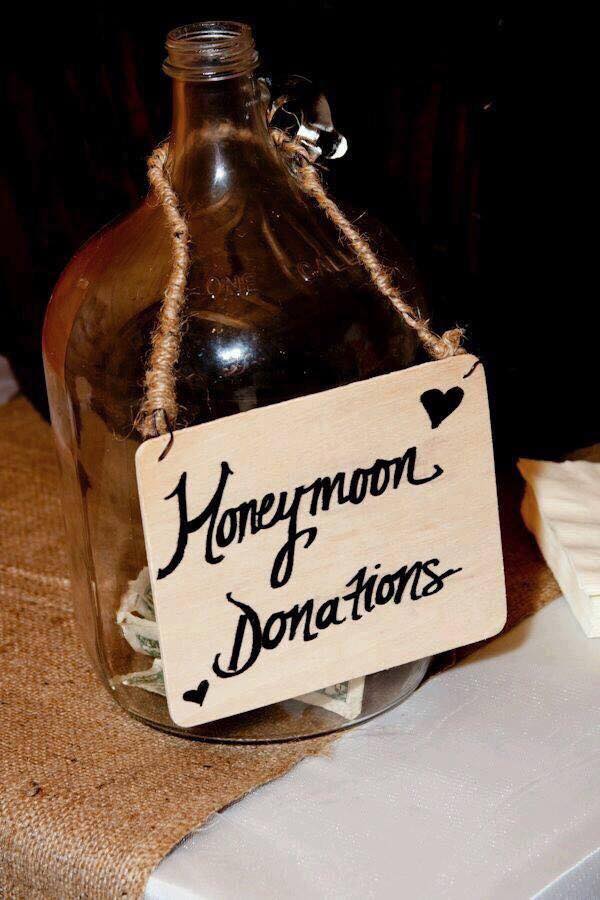 ONE GALL
Honeymoon
Donations